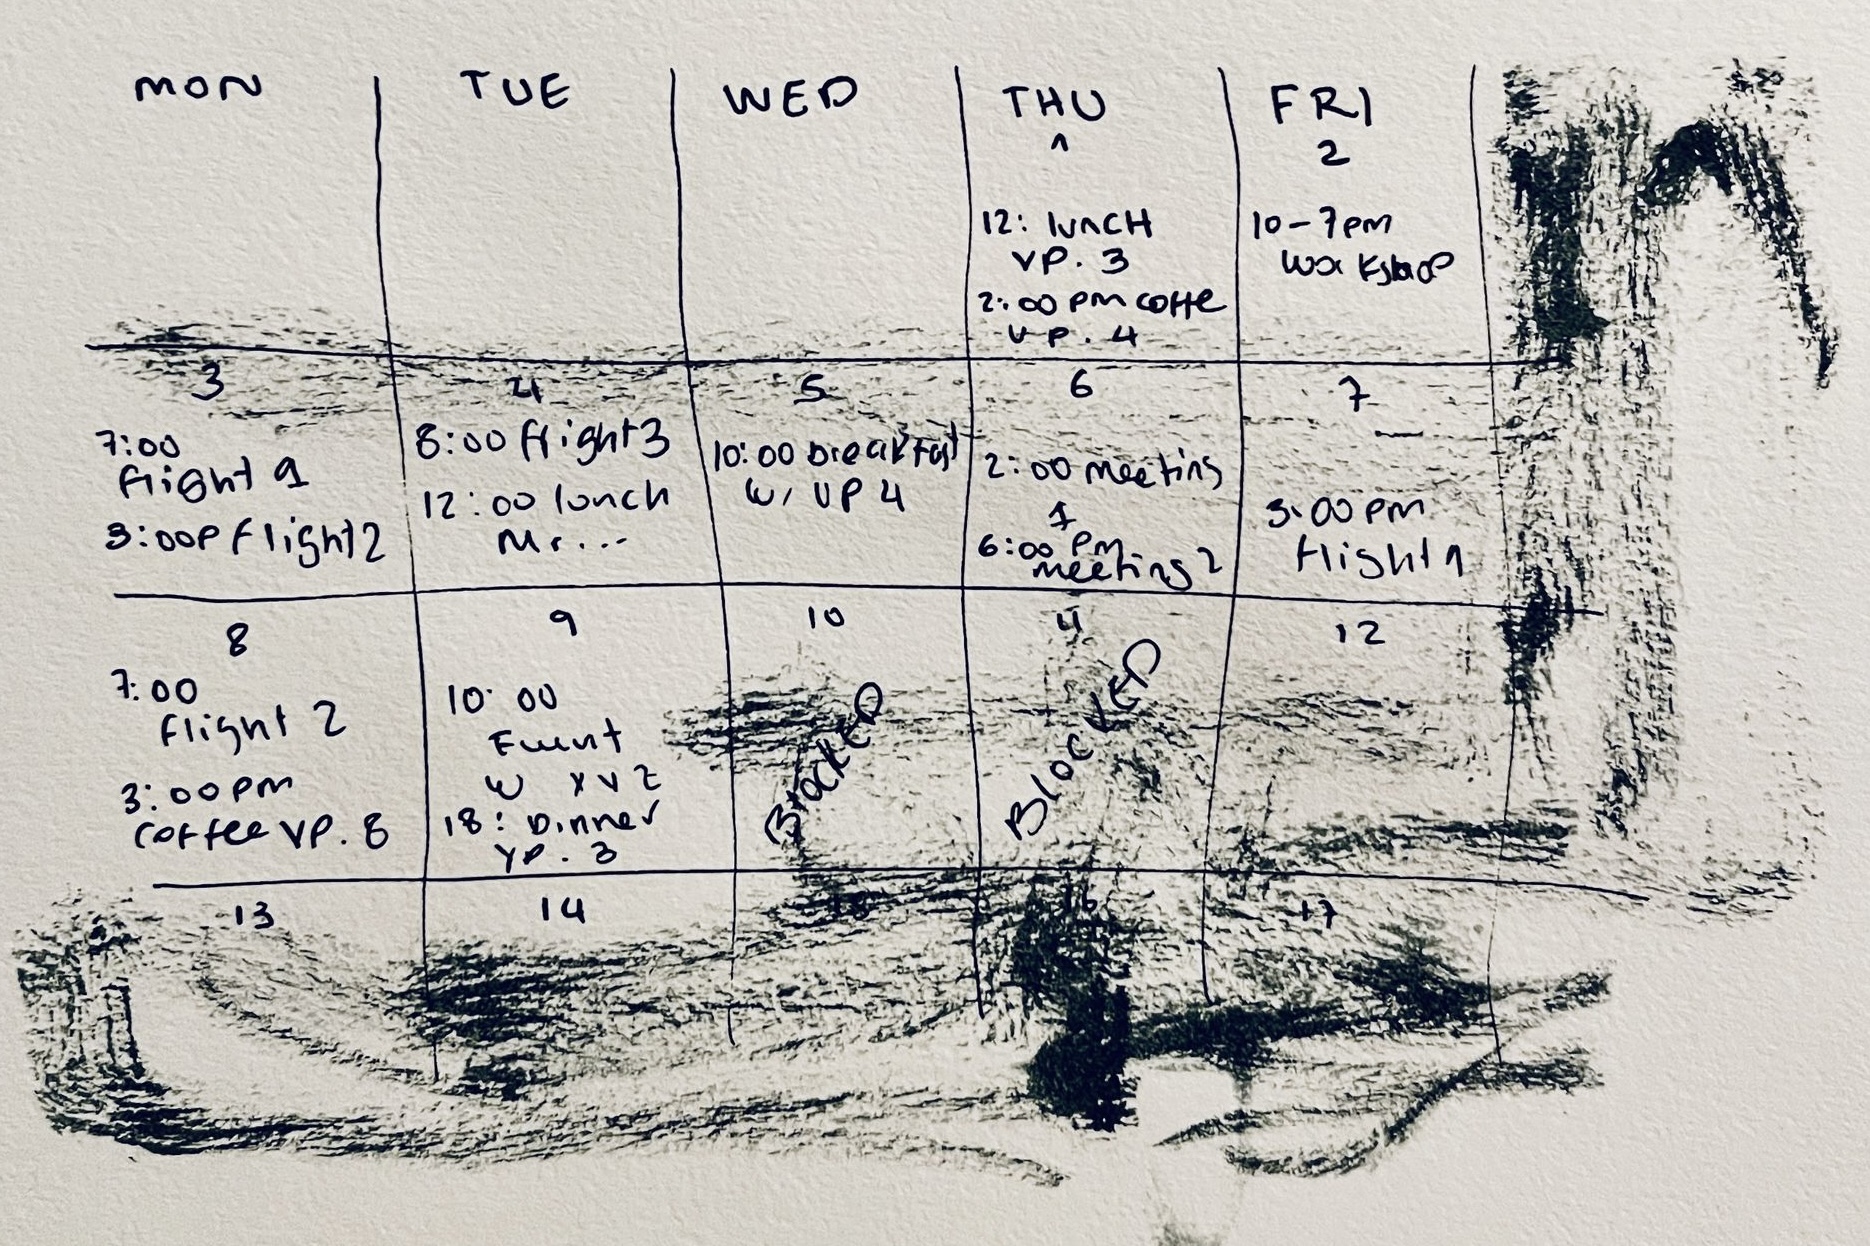 MON TUE WED THU FRI
1 2
12: lunch
VP. 3
2:00 PM coffe
VP. 4
10-7pm
workshop
3 4 5 6 7
7:00
flight 1
3:00P flight 2
8:00 flight 3
12:00 lunch
Mr...
10:00 breakfast
w/ VP 4
2:00 meeting
1
6:00 PM
meeting 2
3:00 pm
flight 1
8 9 10 11 12
7:00
flight 2
3:00 pm
coffee VP. 8
10:00
Event
w xvz
18: Dinner
VP. 3
BlocKED
BlocKED
13 14 15 16 17